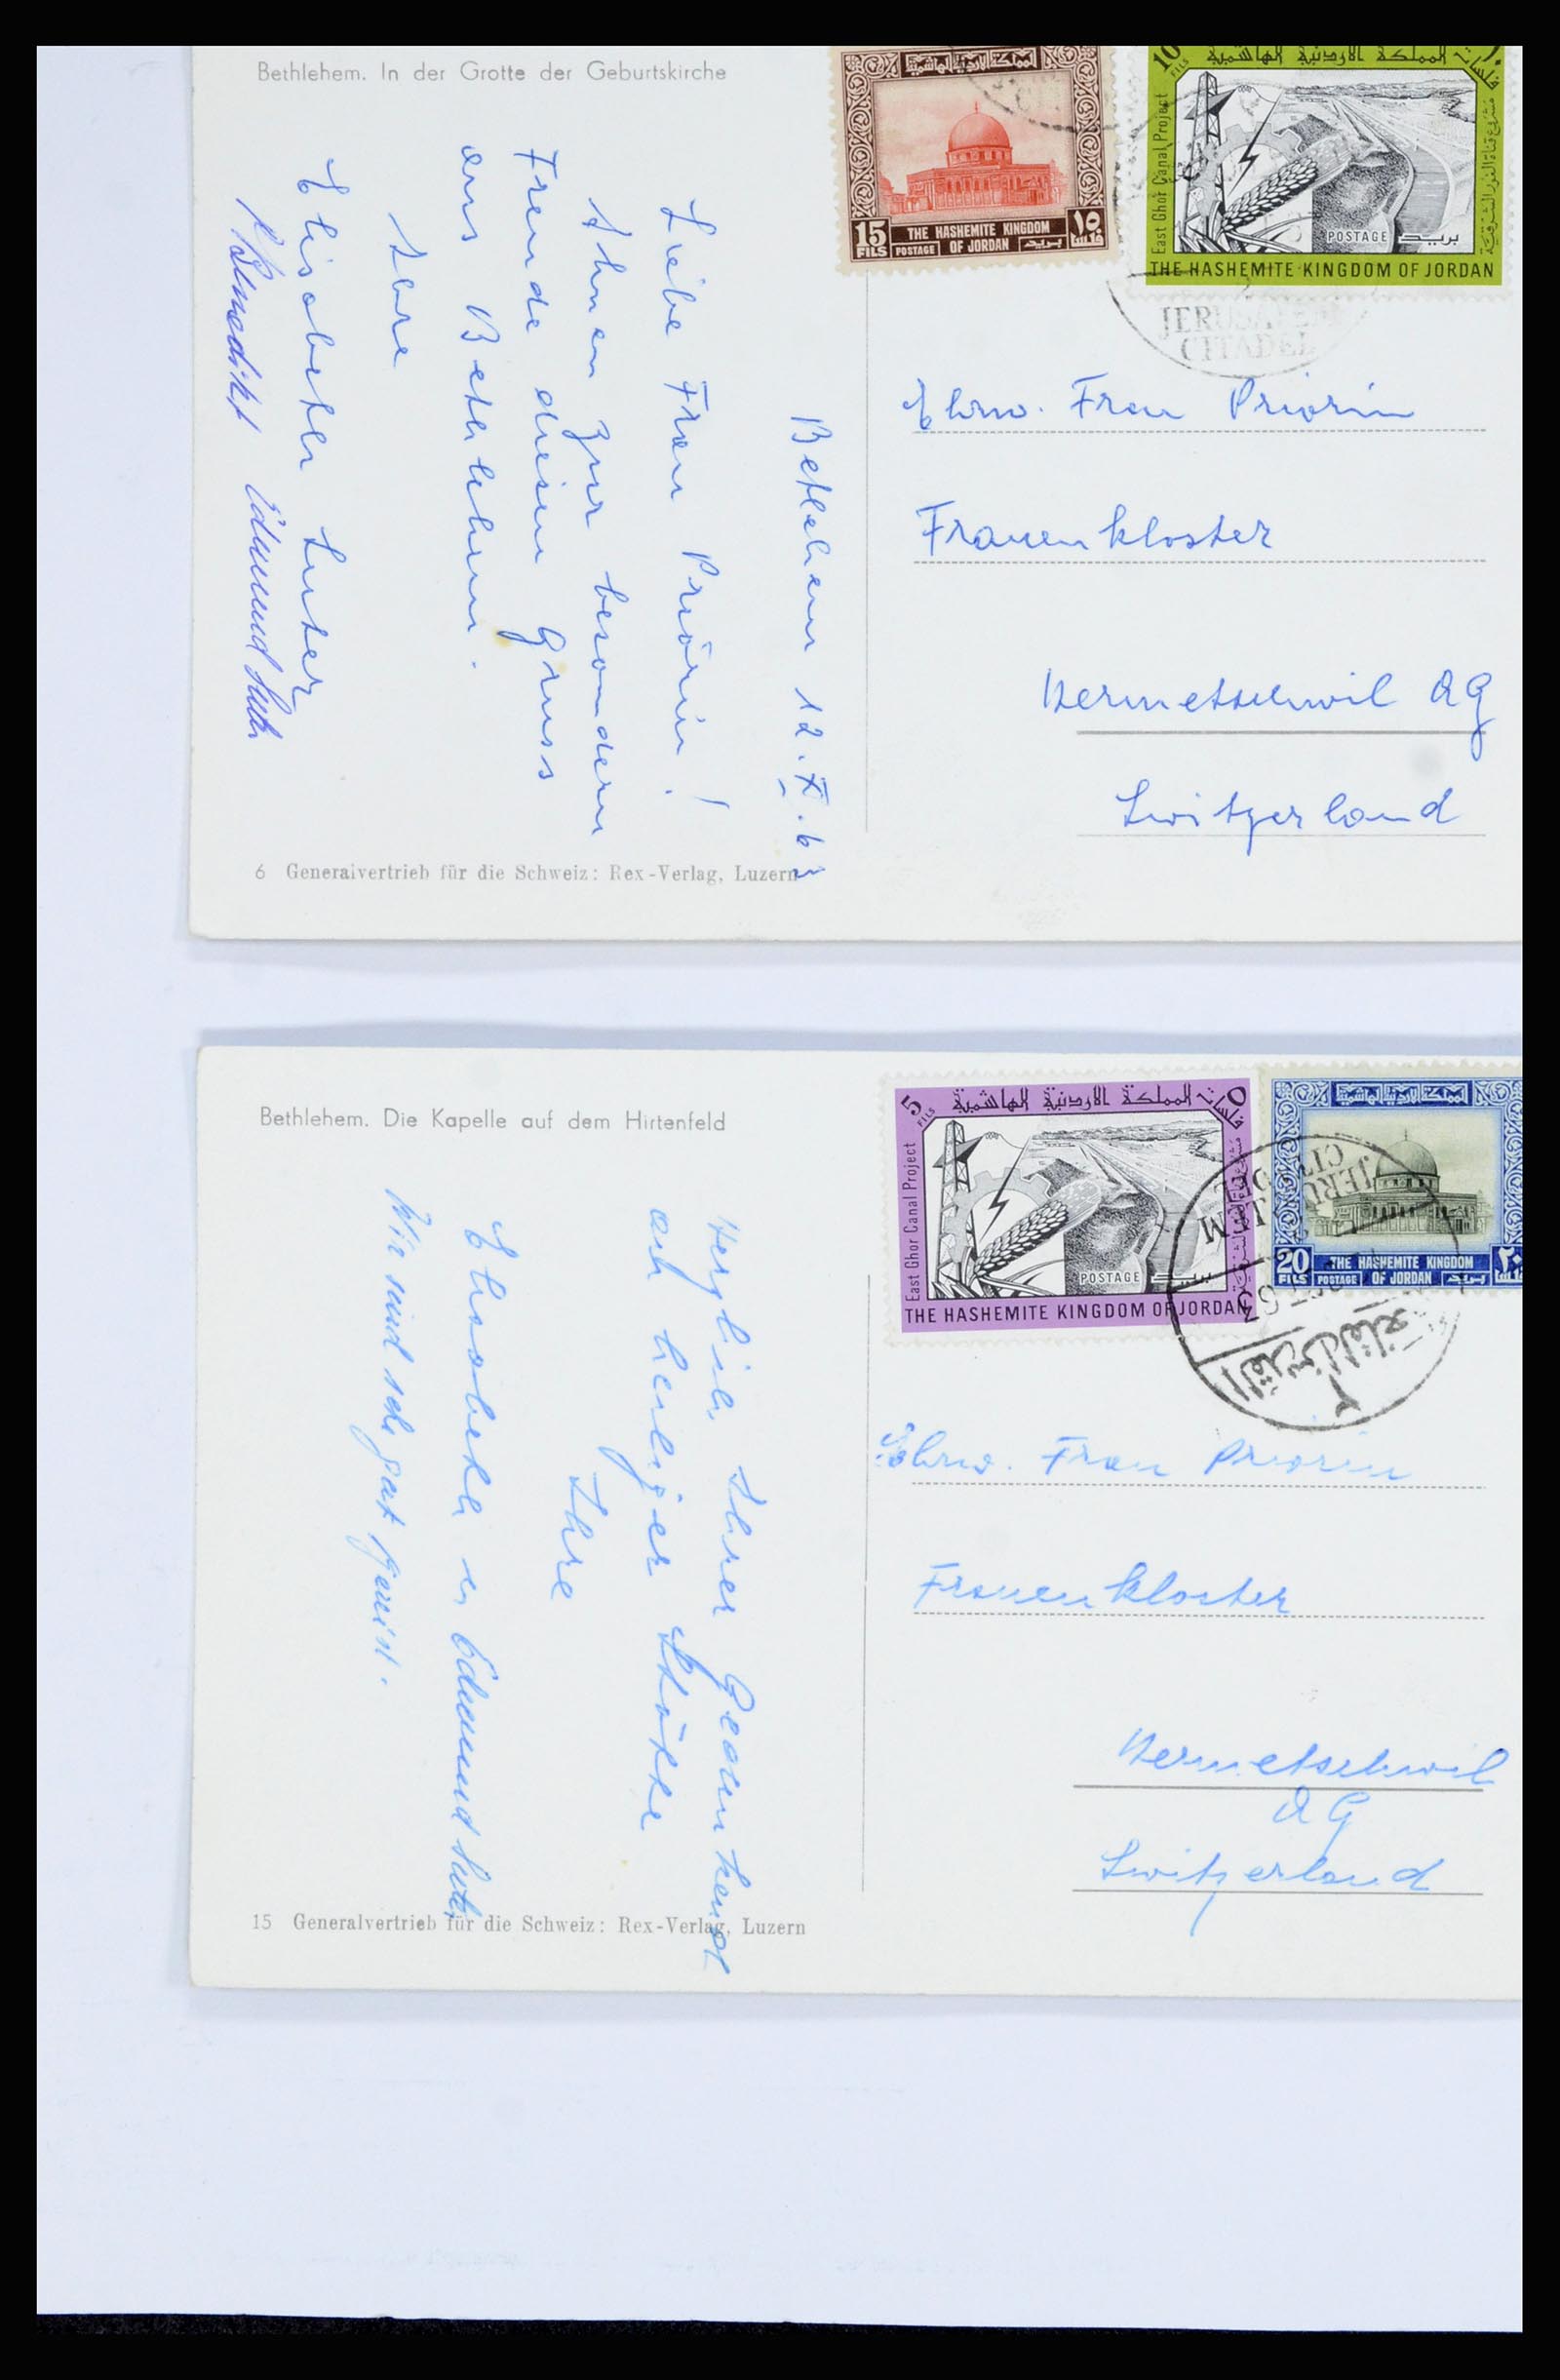 Bethlehem. In der Grotte der Geburtskirche
المملكة الاردنية الهاشمية
15 FILS
THE HASHEMITE KINGDOM
OF JORDAN
POSTAGE
بريد
١٥ فلس
10 FILS
المملكة الاردنية الهاشمية
East Ghor Canal Project
مشروع قناة الغور الشرقية
POSTAGE بريد
THE HASHEMITE KINGDOM OF JORDAN
JERUSALEM
CITADEL
Bethlehem 12. X. 63
Liebe Frau Priorin!
Ihnen zur besondern
Freude diesen Gruss
aus Bethlehem.
Ihre
Elisabeth Suter
Benedikt Edmund Suter
Ehrw. Frau Priorin
Frauenkloster
Hermetschwil AG
Switzerland
6 Generalvertrieb für die Schweiz: Rex-Verlag, Luzern
Bethlehem. Die Kapelle auf dem Hirtenfeld
5 FILS
المملكة الاردنية الهاشمية
٥ فلسات
East Ghor Canal Project
مشروع قناة الغور الشرقية
POSTAGE بريد
THE HASHEMITE KINGDOM OF JORDAN
المملكة الاردنية الهاشمية
20 FILS
THE HASHEMITE KINGDOM
OF JORDAN
POSTAGE
بريد
٢٠
JERUSALEM
CITADEL
Herzlich Ihrer Gedenkend
an heiliger Stätte
Ihre
Elisabeth u Edmund Suter
Wir sind sehr gut gereist.
Ehrw. Frau Priorin
Frauenkloster
Hermetschwil
AG
Switzerland
15 Generalvertrieb für die Schweiz: Rex-Verlag, Luzern